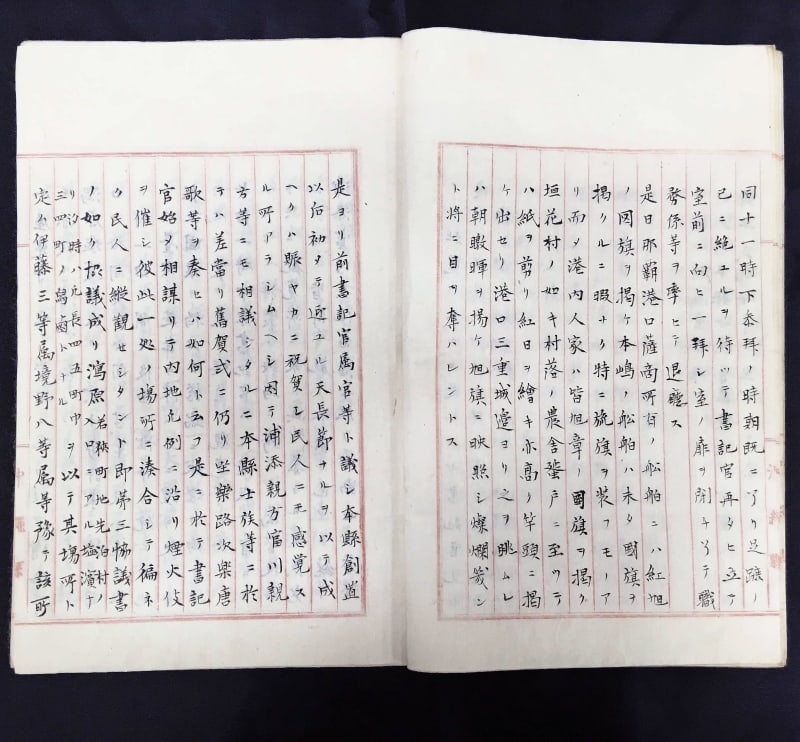 同十一時下参拝ノ時刻既ニ了リ足蹟ノ
已ニ絶ユルヲ待ツテ書記官再タヒ立テ
室前ニ向ヒ一拝シ室ノ扉ヲ閉チ了テ職
務係等ヲ率ヒテ退廳ス
是日那覇港口薩商所有ノ船舶ニハ紅旭
ノ國旗ヲ掲ケ本嶋ノ船舶ハ未タ國旗ヲ
掲クルニ暇ナク特ニ旒旗ヲ装フモノア
リ而メ港内人家ハ皆旭章ノ國旗ヲ掲ク
垣花村ノ如キ村落ノ農舎蜑戸ニ至ツテ
ハ紙ヲ剪リ紅日ヲ繪キ亦高ク竿頭ニ掲
ケ出セリ港口三重城邉ヨリ之ヲ眺ムレ
ハ朝暾暉ヲ揚ケ旭旗ニ映照シ燦爛幾ン
ト将ニ目ヲ奪ハレントス
是ヨリ前書記官属官等ト議シ本縣創置
以后初メテ迎ユル天長節ナルヲ以テ成
ヘクハ賑ヤカニ祝賀シ民人ニモ感覚ス
ル所アラシムヘシ因テ浦添親方富川親
方等ニモ相議シタルニ本縣士族等ニ於
テハ差當リ舊賀式ニ仍リ坐樂路次樂唐
歌等ヲ奏セハ如何ト云フ是ニ於テ書記
官始メ相謀リテ内地ノ例ニ沿リ煙火伎
ヲ催シ彼此一処ノ場所ニ湊合シテ徧ネ
ク民人ニ縦観セシメント即第三協議書
ノ如ク協議成リ潟原若狭町地先泊村ノ入口ニアル塩濱ナ
リ汐時ハ凡長四五町巾三四町ノ潟鹵トナルヲ以テ其場所ト
定ム伊藤三等属境野八等属等豫テ該所